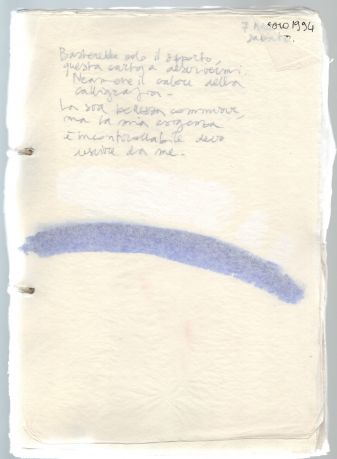 7 MARZO 1994
sabato.
Basterebbe solo il supporto,
questa carta a descrivermi.
Neanche il calore della
calligrafia.
La sua bellezza commuove,
ma la mia esigenza
è incontrollabile devo
uscire da me.